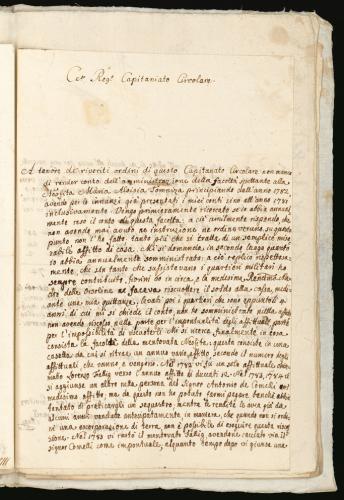 Ces: Reg: Capitaniato Circolare.
A tenore de' riveriti ordini di questo Capitanato Circolare non manco
di render conto dell'amministrazione della facoltà spettante alla
Maria Aloisia principiando dell'anno 1782
avendo per lo innanzi già presentati i miei conti sino all'anno 1781
inclusivamente. Vengo primieramente ricercato se io abbia annual-
mente reso il conto di questa facoltà: a ciò umilmente rispondo, che
non avendo mai avuto ne instruzione ne ordine veruno su questo
punto non l'ho fatto, tanto più che si tratta di un semplice mise-
rabile affitto di casa. Mi si domanda in secondo luogo quanto
io abbia annualmente somministrato; a ciò replico rispettosa-
mente, che sin tanto che sussistevano i quartieri militari ha
sempre contribuito, fiorini 20 in circa, e la medesima
delle Orsoline ne faceva riscuottere il soldo alla casa, medi-
ante una mia quittanza, levati poi i quartieri che sono appuntoli 4
anni, di cui mi si chiede il conto, non ho somministrato nulla
non avendo riscosso nulla parte per l'imponibilità degli affittuali parte
per l'impossibilità di riscuotterli. Mi si ricerca finalmente in cosa
consista la facoltà della mentovata questa consiste in una
casetta, da cui si ritrae un annuo vario affitto secondo il numero degli
affittuali, che vanno e vengono. Nel 1782 vi fu un solo affittuale chia-
mato verso l'annuo affitto di ducati 12. Nel 1783, 1784 vi
si aggiunse un altro nella persona del Signor Antonio de Comelli col
medesimo affitto, ma da questo non ho potuto farmi pagare benchè abbia
tentato di praticargli un sequestro, mentre le rendite le avea già da
alcuni anni vendute anticipatamente in maniera, che quando non si ordi-
ni una escorporazione di terre, non è possibile di eseguire questa riscos-
sione. Nel 1783 vi restò il mentovato avendone cacciato via il
Signor Comelli come impontuale, alquanto tempo dopo vi giunse una